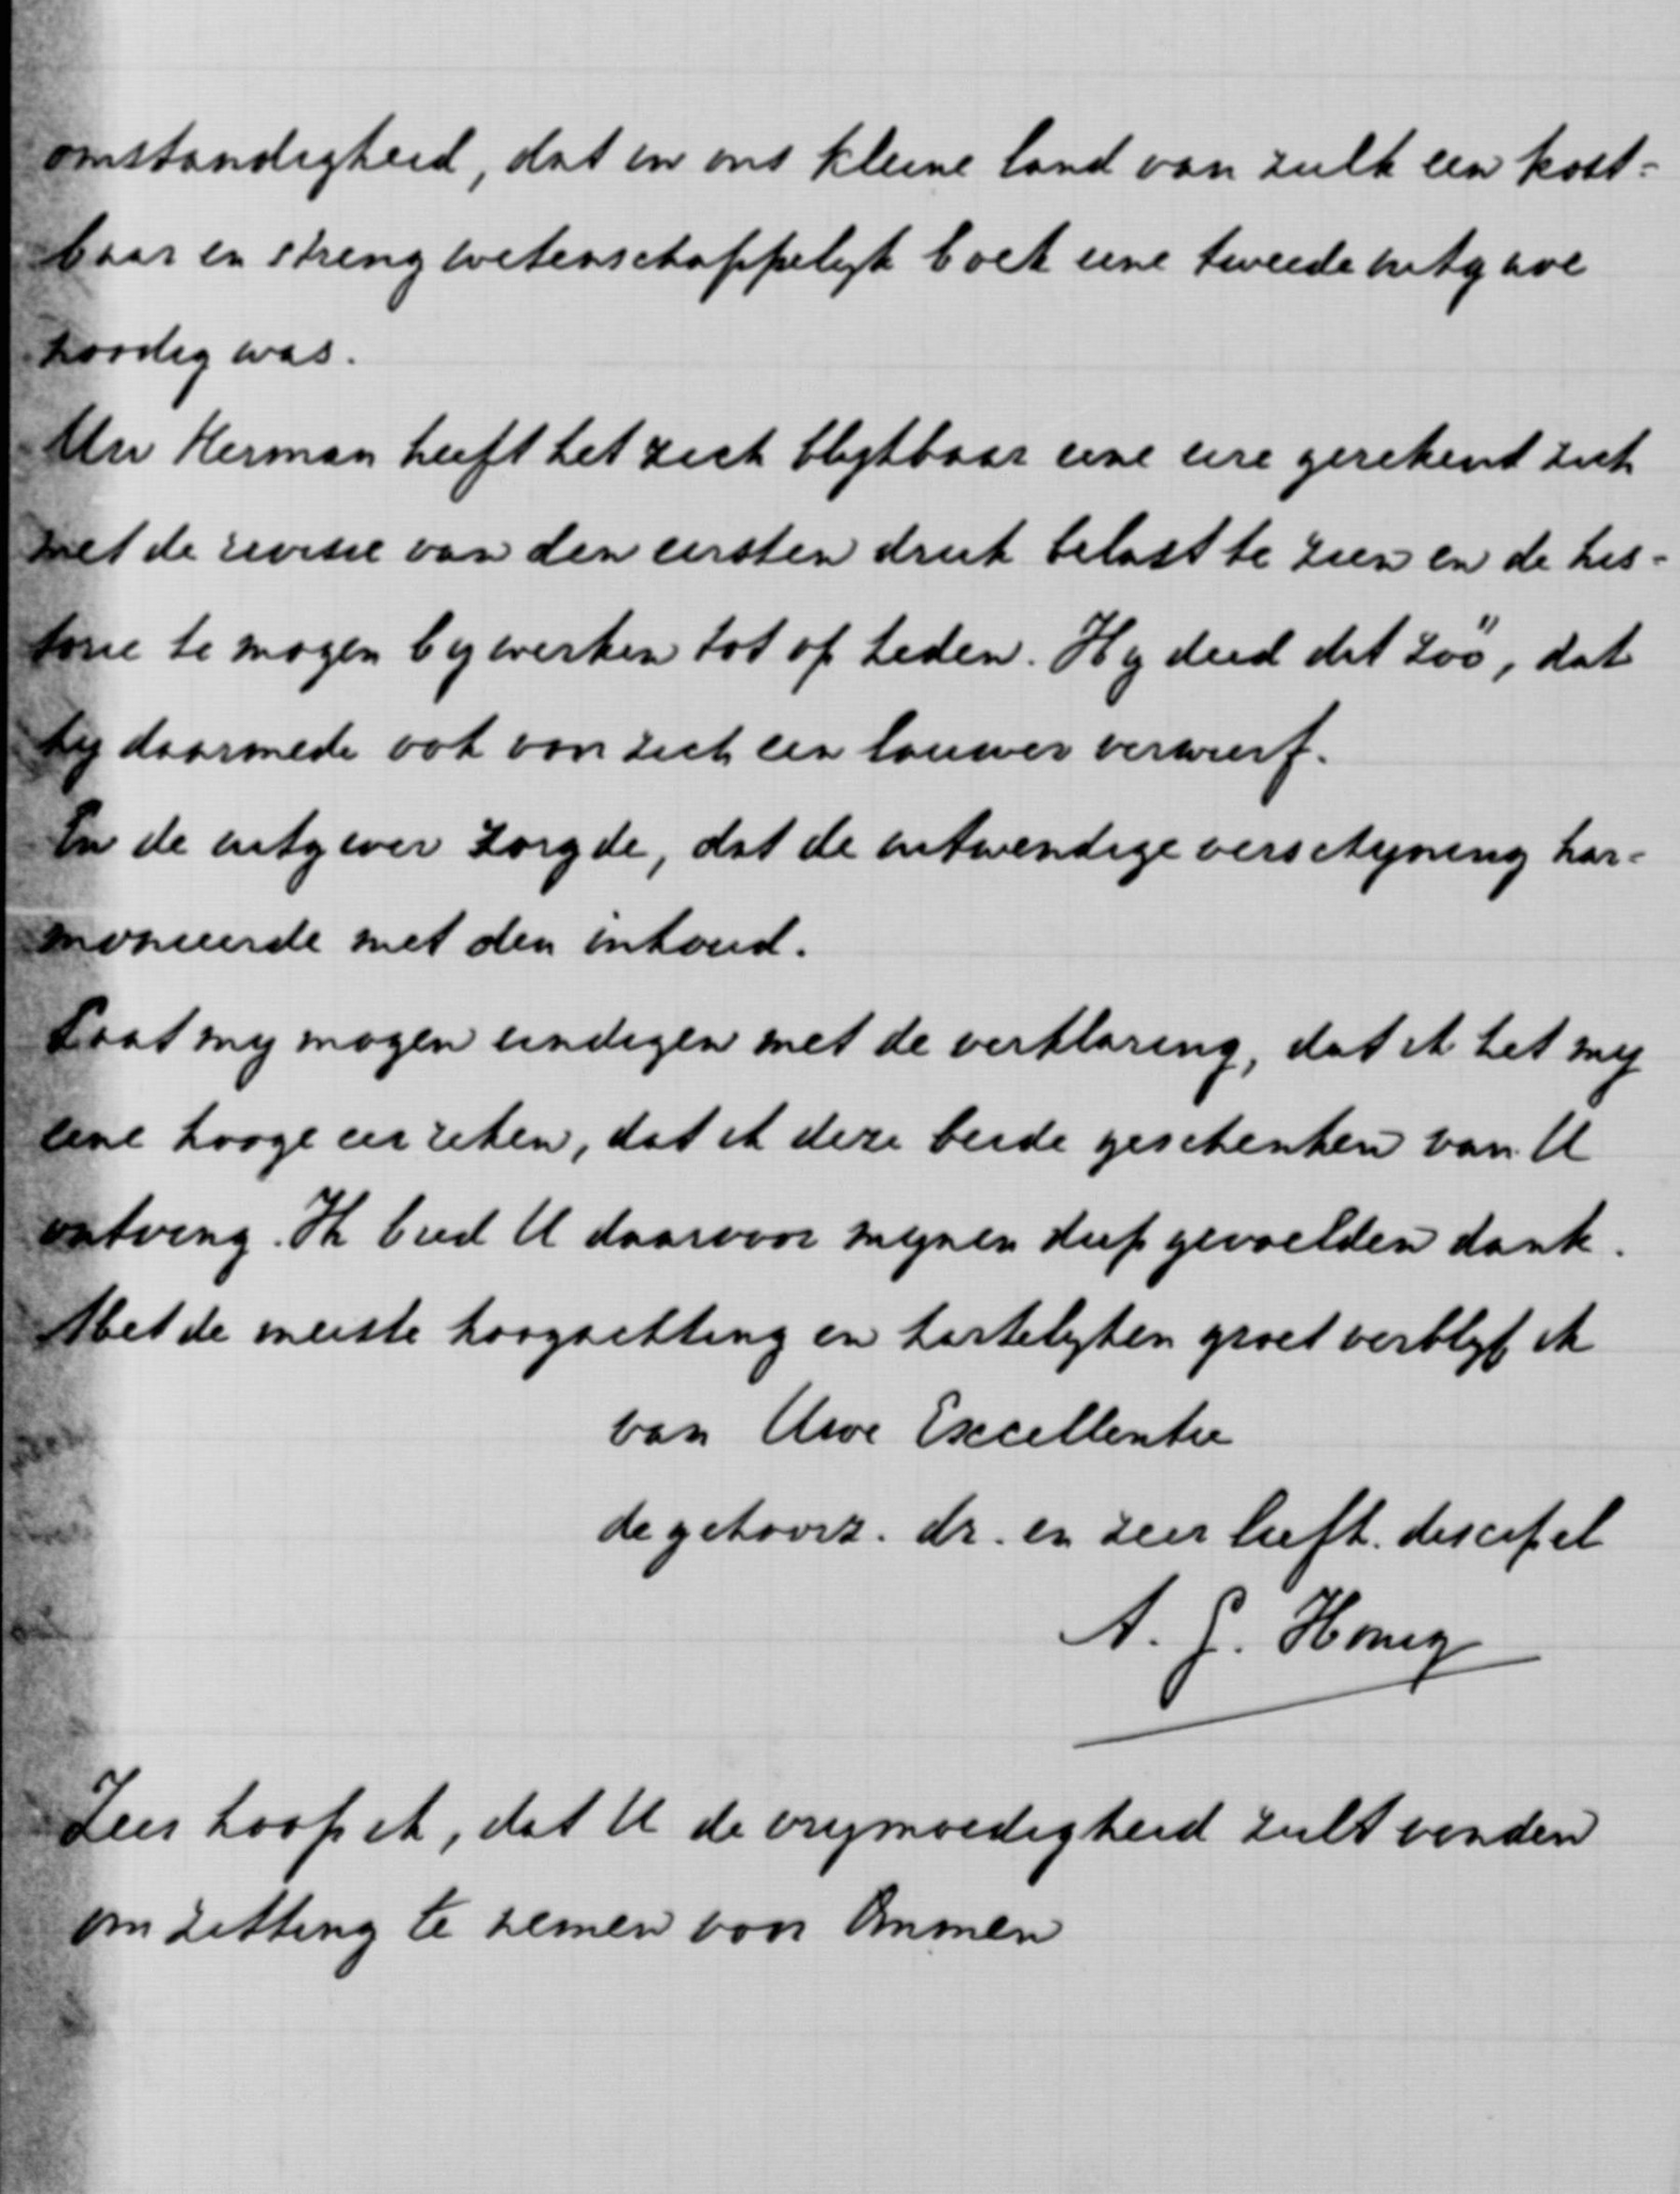 omstandigheid, dat in ons kleine land van zulk een kost-
baar en streng wetenschappelijk boek eene tweede uitgave
noodig was.
Uw Herman heeft het zich blijkbaar eene eere gerekend zich
met de revisie van den eersten druk belast te zien en de his-
torie te mogen bijwerken tot op heden. Hij deed dit zóó, dat
hij daarmede ook voor zich een lauwer verwierf.
En de uitgever zorgde, dat de uitwendige verschijning har-
monieerde met den inhoud.
Laat mij mogen eindigen met de verklaring, dat ik het mij
eene hooge eer reken, dat ik deze beide geschenken van U
ontving. Ik bied U daarvoor mijnen diep gevoelden dank.
Met de meeste hoogachting en hartelijken groet verblijf ik
van Uwe Excellentie
de gehoorz. dr. en zeer liefh. discipel
A. G. Honig
Zeer hoop ik, dat U de vrijmoedigheid zult vinden
om zitting te nemen voor Ommen